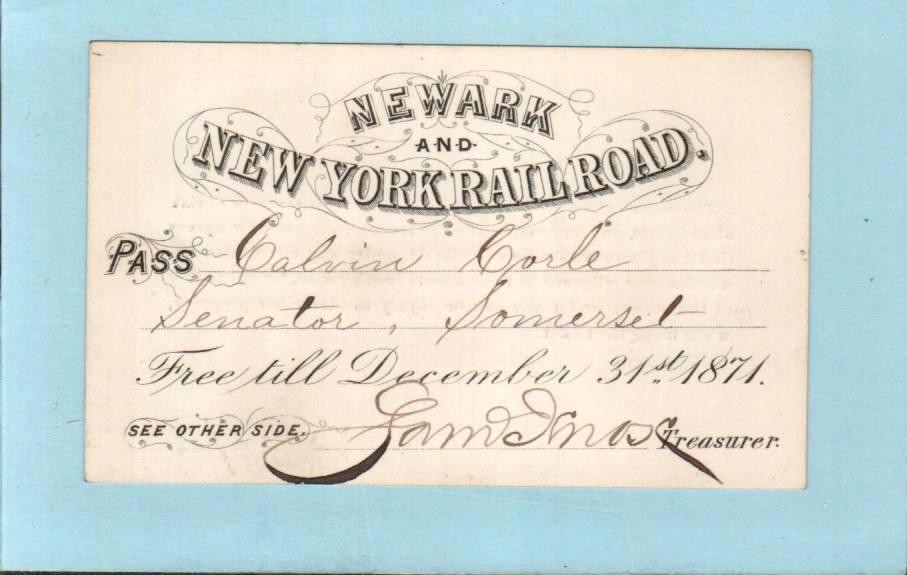 NEWARK
AND
NEW YORK RAIL ROAD.
PASS Calvin Corle
Senator, Somerset
Free till December 31st 1871.
SEE OTHER SIDE. Sam Knox Treasurer.